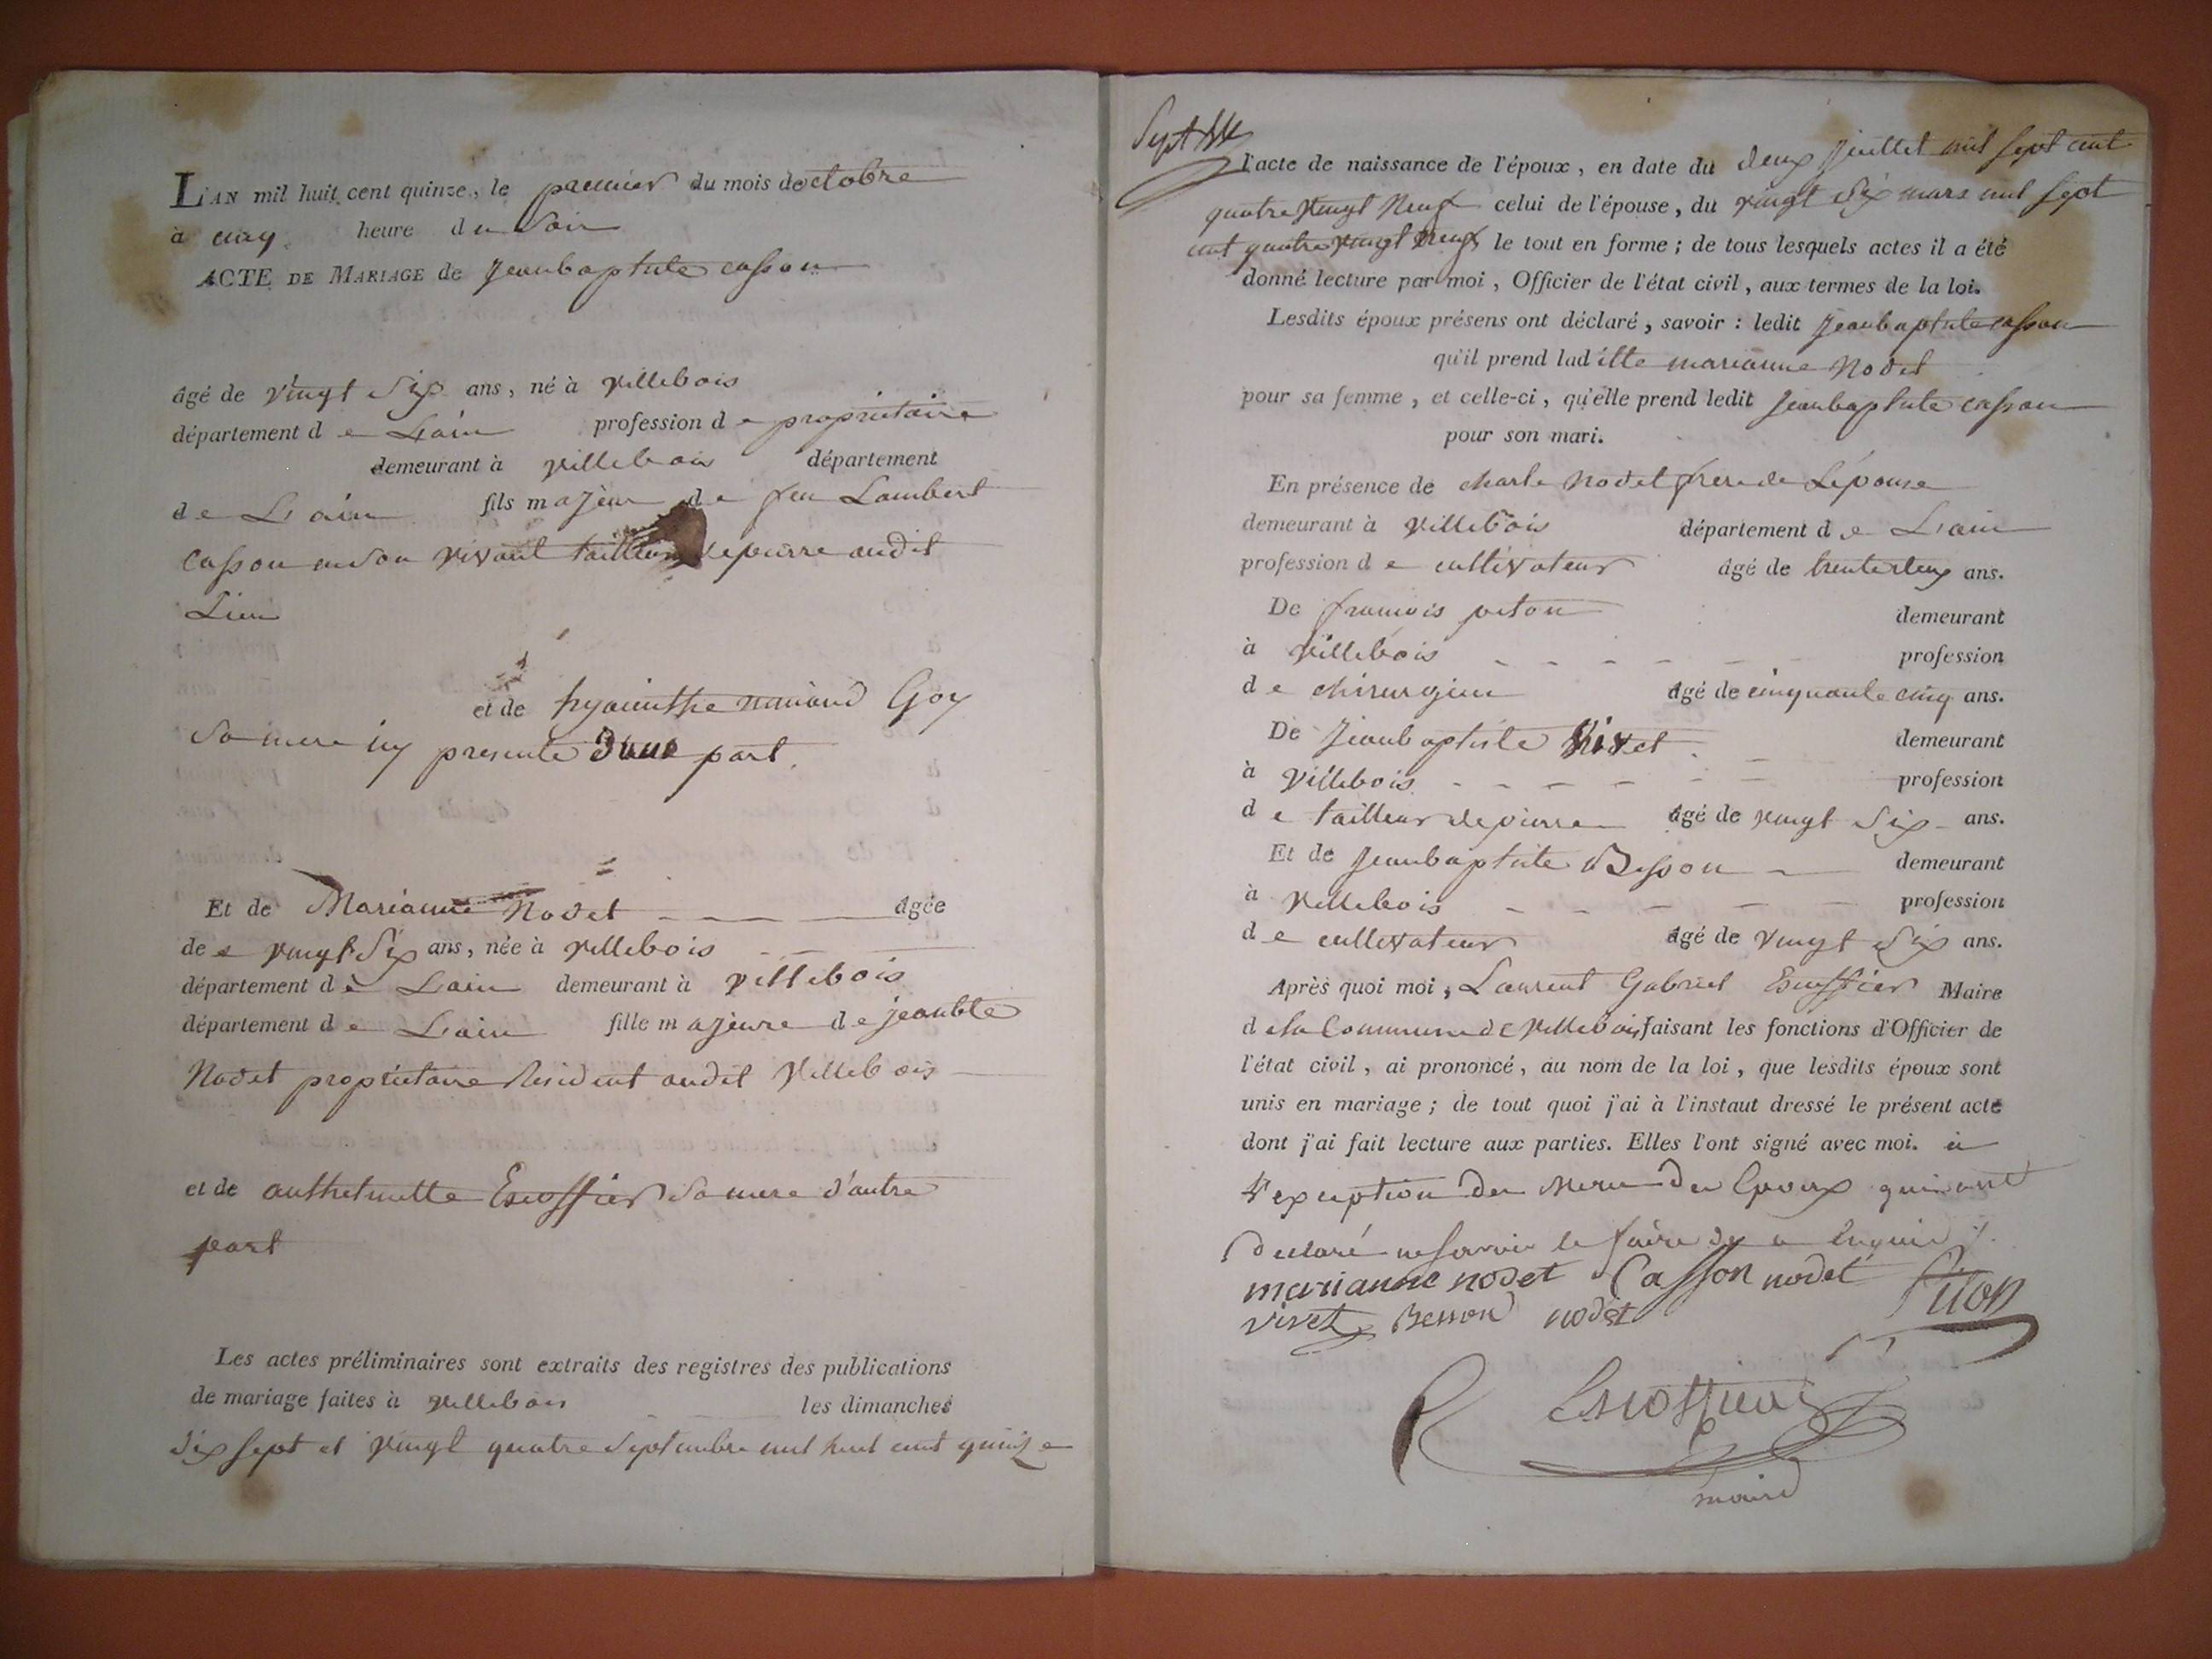 L'AN mil huit cent quinze, le premier du mois doctobre
à cinq heure du Soir
ACTE DE MARIAGE de Jeanbaptiste casson
âgé de vingt Six ans, né à villebois
département de L'ain profession de propriétaire
demeurant à villebois département
de L'ain fils majeur de feu Lambert
Casson en son vivant tailleur de pierre audit
Lieu
et de hyacinthe Goy
Sa mere icy presente Dune part.
Et de Marianne Nodet âgée
de vingt Six ans, née à villebois
département de L'ain demeurant à villebois
département de L'ain fille majeure de jeanbte
Nodet propriétaire Résident audit Villebois
et de anthelmette Escoffier Sa mere d'autre
part
Les actes préliminaires sont extraits des registres des publications
de mariage faites à villebois les dimanches
dix sept et vingt quatre Septembre mil huit cent quinze
l'acte de naissance de l'époux, en date du deux juillet mil sept cent
quatre vingt Neuf celui de l'épouse, du vingt Six mars mil sept
cent quatre vingt neuf, le tout en forme; de tous lesquels actes il a été
donné lecture par moi, Officier de l'état civil, aux termes de la loi.
Lesdits époux présens ont déclaré, savoir : ledit Jeanbaptiste casson
qu'il prend ladite marianne Nodet
pour sa femme, et celle-ci, qu'elle prend ledit Jeanbaptiste casson
pour son mari.
En présence de charle Nodet frere de L'épouse
demeurant à villebois département de L'ain
profession de cultivateur âgé de trente deux ans.
De francois piton demeurant
à villebois profession
de chirurgien âgé de cinquante cinq ans.
De Jeanbaptiste Vivet demeurant
à Villebois profession
de tailleur de pierre âgé de vingt Six ans.
Et de Jeanbaptiste Besson demeurant
à Villebois profession
de cultivateur âgé de vingt Six ans.
Après quoi moi, Laurent Gabriel Escoffier Maire
de la Commune de Villebois, faisant les fonctions d'Officier de
l'état civil, ai prononcé, au nom de la loi, que lesdits époux sont
unis en mariage; de tout quoi j'ai à l'instaut dressé le présent acte
dont j'ai fait lecture aux parties. Elles l'ont signé avec moi. à
l'exception des Meres des Epoux qui ont
declaré ne savoir le faire de ce enquis
marianne nodet Casson nodet Piton
vivet Besson nodet
Escoffier
maire